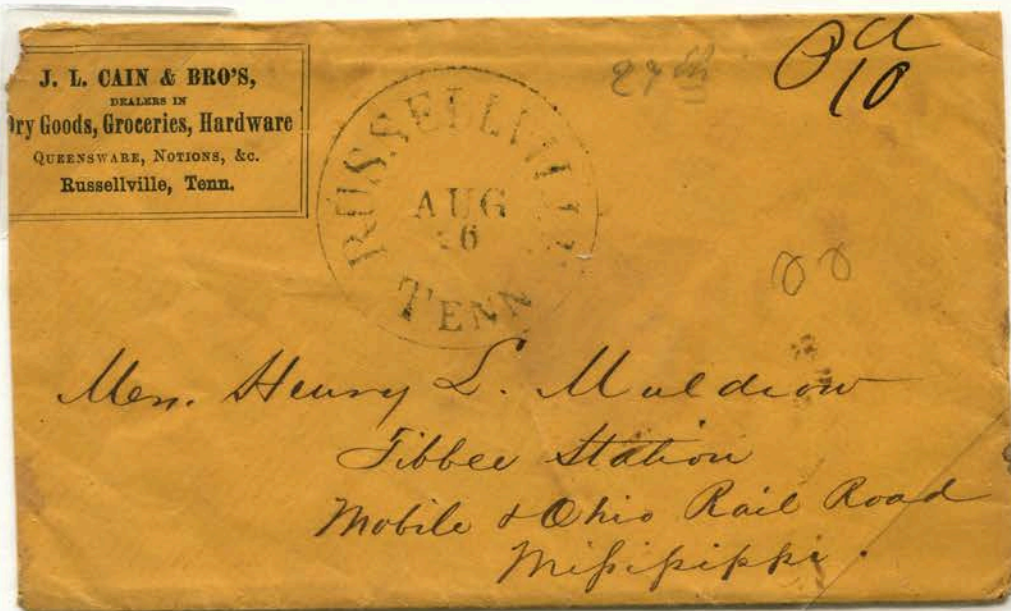 J. L. CAIN & BRO'S,
DEALERS IN
Dry Goods, Groceries, Hardware
QUEENSWARE, NOTIONS, &C.
Russellville, Tenn.
RUSSELLVILLE
AUG
26
TENN
Pd
10
Mrs. Henry L. Muldrow
Tibbee Station
Mobile & Ohio Rail Road
Missisippi.